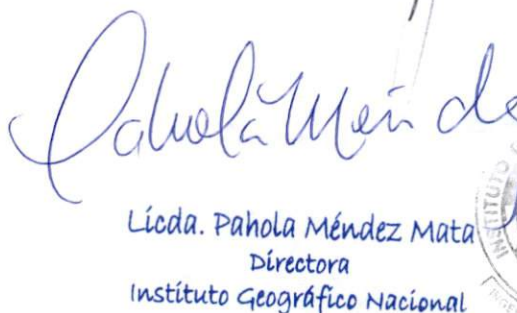 Pahola Ménde
Licda. Pahola Méndez Mata
Directora
Instituto Geográfico Nacional
INSTITUTO